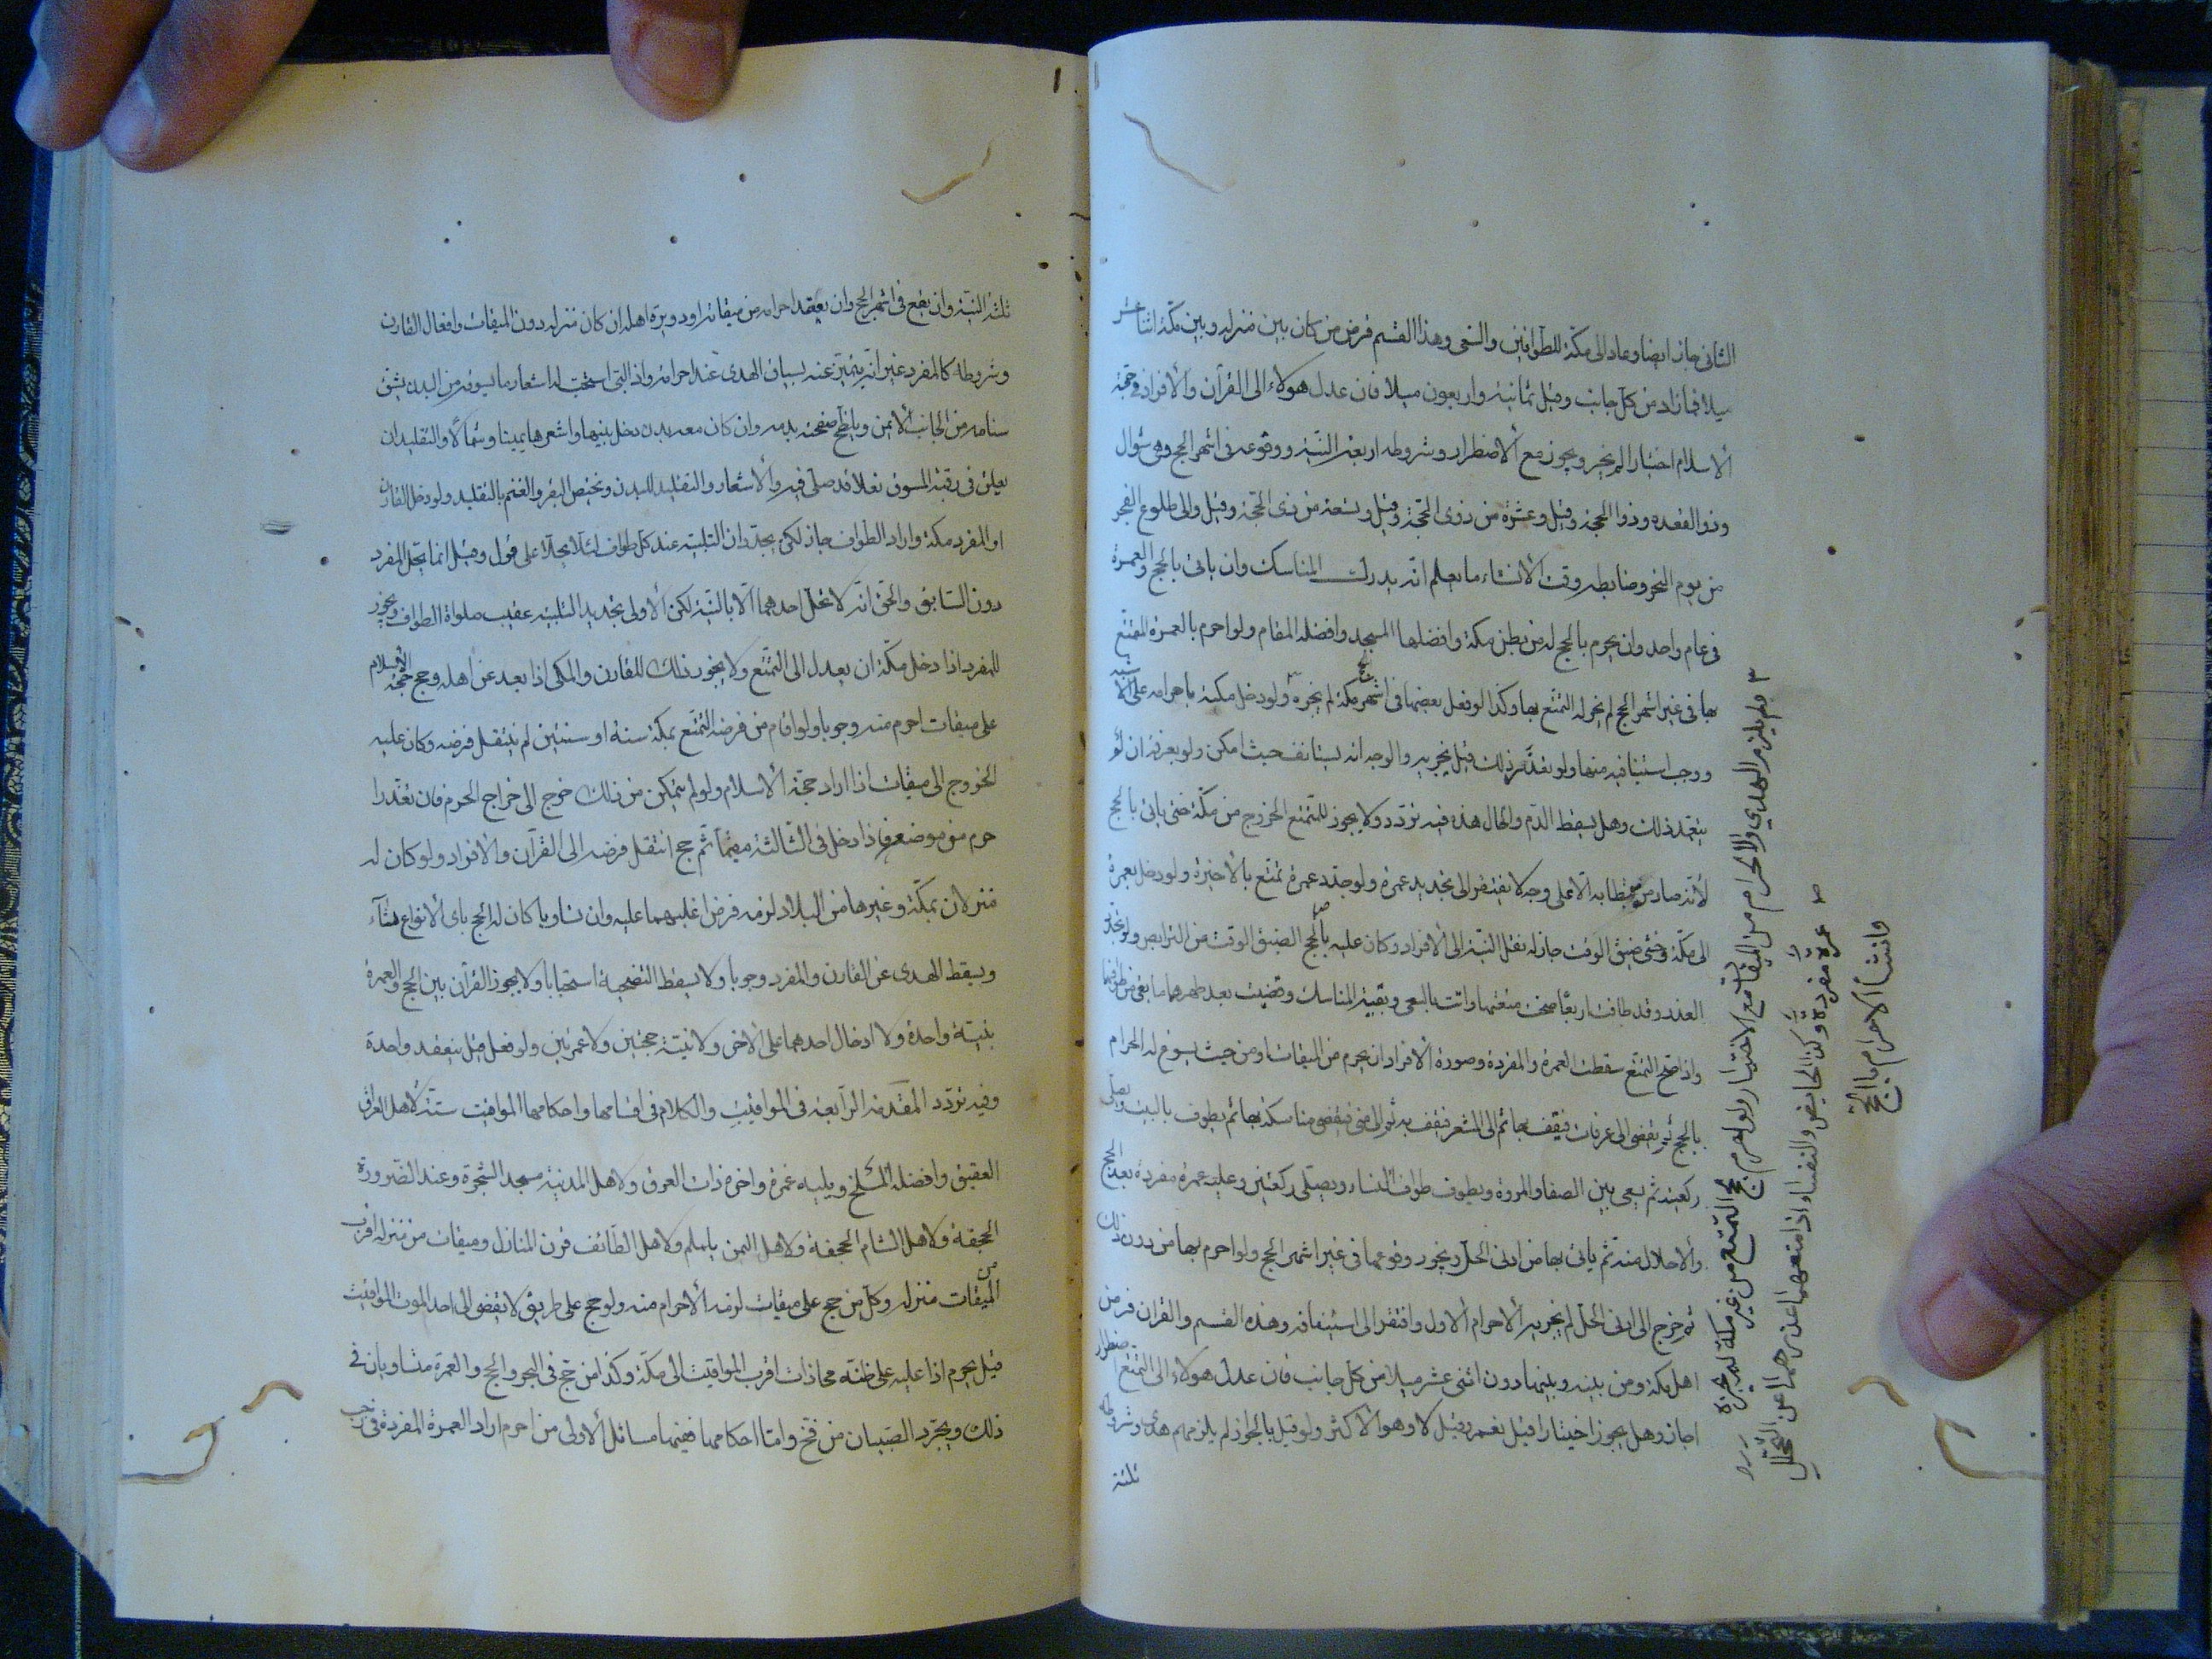 الثانى جاز ايضا وعاد الى مكة للطوافين والسعى وهذا القسم فرض من كان بين منزله وبين مكة اثنا عشر
ميلا فما زاد من كل جانب وقيل ثمانية واربعون ميلا فان عدل هولاء الى القرآن والافراد فى حجة
الاسلام اختيارا لم يجز ويجوز مع الاضطرار وشروطه اربعة النية ووقوعه فى اشهر الحج وهى شوال
وذو القعده وذوا الحجة وقيل وعشرة من ذى الحجة وقيل وتسعة من ذى الحجة وقيل والى طلوع الفجر
من يوم النحر وضابطه وقت الانشاء ما يعلم انه يدرك المناسك وان ياتى بالحج والعمرة
فى عام واحد وان يحرم بالحج له من بطن مكة وافضلها المسجد وافضله المقام ولو احرم بالعمرة المتمتع
بها فى غير اشهر الحج لم يجز له التمتع بها وكذا لو فعل بعضها فى اشهر مكة لم يجزه ولو دخل مكة باحرامه على الاشبه
ووجب استينافه منها ولو تعذر ذلك قيل يجزيه والوجه انه يستانف حيث امكن ولو بعرفة ان لم
يتعمد ذلك وهل يسقط الدم والحال هذه فيه تردد ولا يجوز للمتمتع الخروج من مكة حتى ياتى بالحج
لانه صار مرتبطا به الا على وجه لا يفتقر الى تجديد عمرة ولو جدد عمرة تمتع بالاخيرة ولو دخل بعمرة
الى مكة وخشى ضيق الوقت جاز له نقل النية الى الافراد وكان عليه بالحج الضيق الوقت من التربص ولو تجدد
العذر وقد طافت اربعا صحت متعتها واتت بالسعى وبقية المناسك وقضيت بعد طهرها ما بقى من طوافها
واذا صح التمتع سقطت العمرة والمفردة وصورة الافراد ان يحرم من الميقات او من حيث يسوغ له الحرام
بالحج ثم يقضى الى عرفات فيقف بها ثم الى المشعر فيقف به ثم الى منى فيقضى مناسكه بها ثم يطوف بالبيت ويصلى
ركعتيه ثم يسعى بين الصفا والمروة ويطوف طواف النساء ويصلى ركعتين وعليه عمرة مفردة بعد الحج
والاحلال منه ثم ياتى بها من ادنى الحل ويجوز وقوعها فى غير اشهر الحج ولو احرم بها من دون ذلك
ثم خرج الى ادنى الحل لم يجزيه الاحرام الاول وافتقر الى استينافه وهذه القسم والقران فرض
اهل مكة ومن بينه وبينها دون اثنى عشر ميلا من كل جانب فان عدل هولاء الى التمتع اضطرار
اجاز وهل يجوز اختيارا قيل نعم وقيل لا وهو الاكثر ولو قيل بالجواز لم يلزمهم هدى وشروطه
ثلثة
٣ ولم يلزم الهدي والاحرام من الميقات مع الاختيار ولو احرم بحج التمتع من غير مكة لم يجزه
عمرة مفردة وكذا الحايض والنفساء اذا منعهما عذرهما عن التحلل
وانشأ الاحرام بالحج
ثلثه النية وان يقع فى اشهر الحج وان يعقد احرامه من ميقاته او دويرة اهله ان كان منزله دون الميقات وافعال القارن
وشروطه كالمفرد غير انه يتميز عنه بسياق الهدى عند احرامه واذا لبى استحب له اشعار ما يسوقه من البدن يشق
سنامه من الجانب الايمن ويلطخ صفحته بدمه وان كان معه بدن دخل بينها واشعرها يمينا وشمالا والتقليد ان
يعلق فى رقبة المسوق نعلا قد صلى فيه والاشعار والتقليد للبدن وتختص البقر والغنم بالتقليد ولو دخل القارن
او المفرد مكة واراد الطواف جاز لكن يجددان التلبية عند كل طواف لئلا يحلا على قول وقيل انما يحل المفرد
دون السابق والحق انه لا يحل احدهما الا بالنية لكن الاولى تجديد التلبية عقيب صلواة الطواف ويجوز
للمفرد اذا دخل مكة ان يعدل الى التمتع ولا يجوز ذلك للقارن والمكى اذا بعد عن اهله وحج حجة الاسلام
على ميقات احرم منه وجوبا ولو اقام من فرضه التمتع بمكة سنة او سنتين لم ينتقل فرضه وكان عليه
الخروج الى ميقات اذا اراد حجة الاسلام ولو لم يتمكن من ذلك خرج الى خراج الحرم فان تعذرا
حرم من موضعه فاذا دخل فى الثالثة مقيما ثم حج انتقل فرضه الى القرآن والافراد ولو كان له
منزلان بمكة وغيرها من البلاد لزمه فرض اغلبهما عليه وان تساويا كان له الحج باى الانواع شاء
ويسقط الهدى عن القارن والمفرد وجوبا ولا يسقط التضحية استحبابا ولا يجوز القرآن بين الحج والعمرة
بنية واحدة ولا ادخال احدهما على الاخر ولا نية حجتين ولا عمرتين ولو فعل قيل ينعقد واحدة
وفيه تردد المقدمة الرابعة فى المواقيت والكلام فى اقسامها واحكامها المواقيت ستة لاهل العراق
العقيق وافضله المسلخ ويليه غمرة واخره ذات العرق ولاهل المدينة مسجد الشجرة وعند الضرورة
الجحفة ولاهل الشام الجحفة ولاهل اليمن يلملم ولاهل الطائف قرن المنازل وميقات من منزله اقرب
من الميقات منزله وكل من حج على ميقات لزمه الاحرام منه ولو حج على طريق لا يفضى الى احد الموت المواقيت
قيل يحرم اذا عليه على ظنه محاذات اقرب المواقيت الى مكة وكذا من حج فى البحر والحج والعمرة متساويان فى
ذلك ويجرد الصبيان من فخ واما احكامها ففيها مسائل الاولى من احرم اراد العمرة المفردة فى رجب